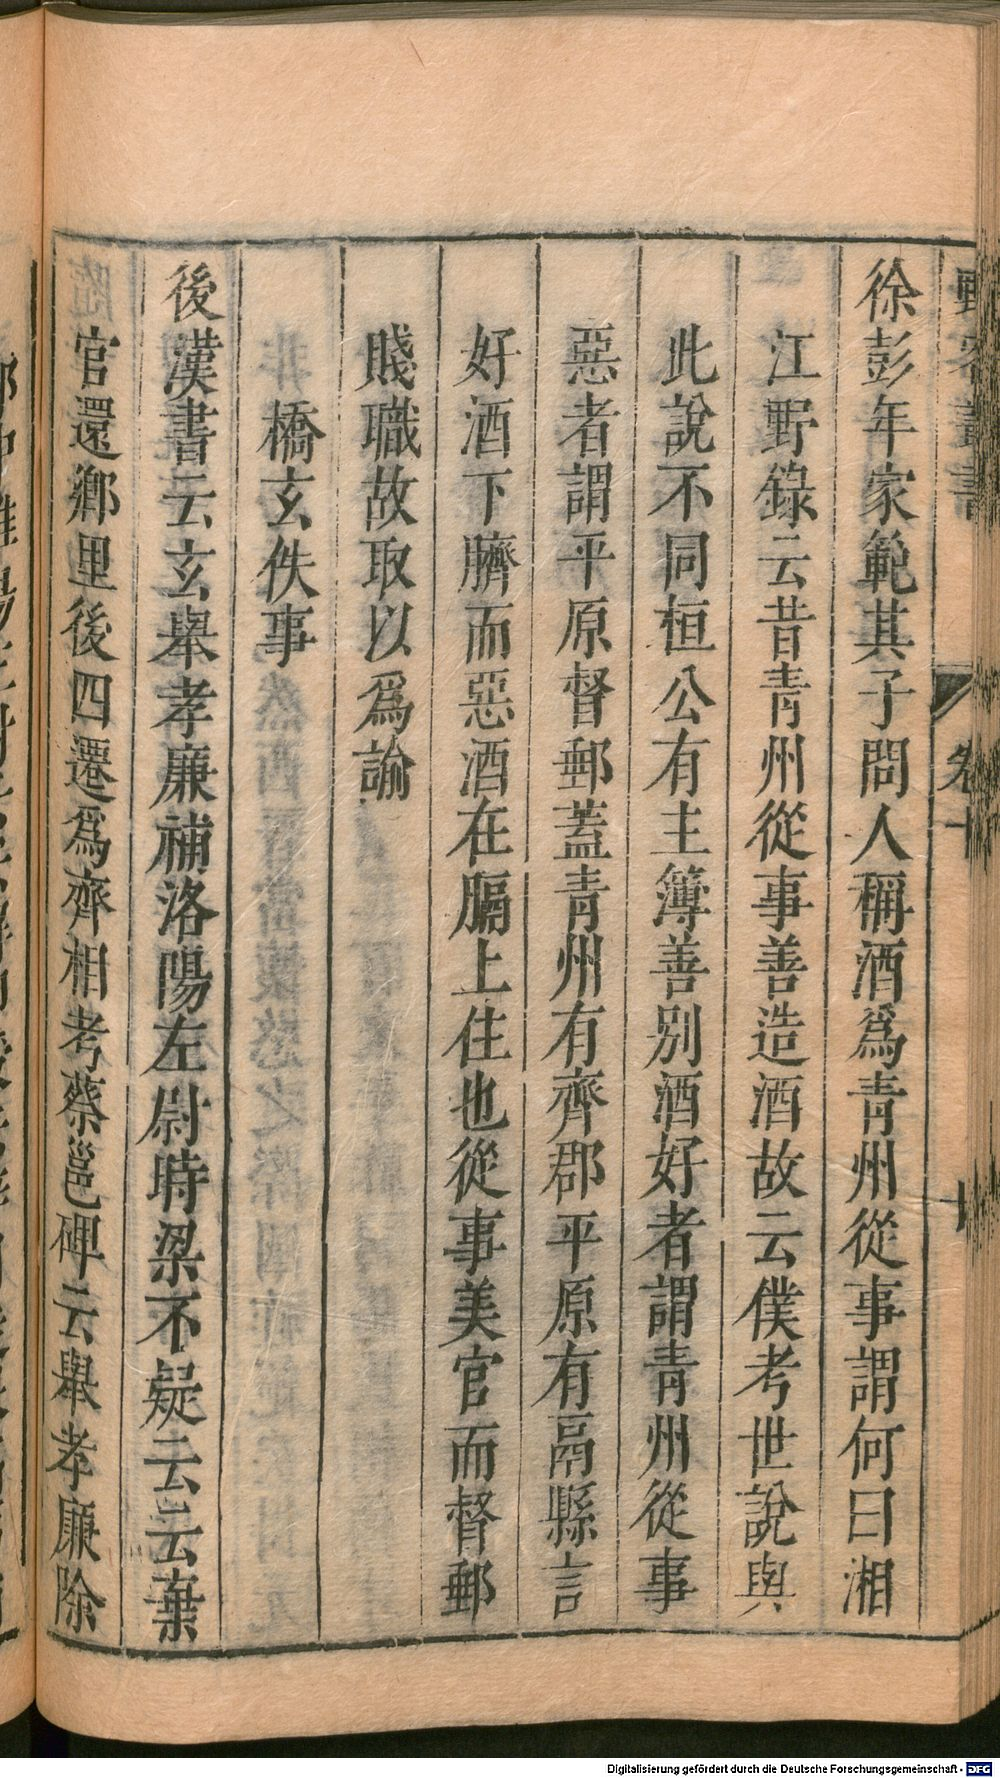 野客叢書
卷十
十
徐彭年家範其子問人稱酒爲青州從事謂何曰湘
江野錄云昔青州從事善造酒故云僕考世說與
此說不同桓公有主簿善别酒好者謂青州從事
惡者謂平原督郵蓋青州有齊郡平原有鬲縣言
好酒下臍而惡酒在膈上住也從事美官而督郵
賤職故取以爲諭
橋玄佚事
後漢書云玄舉孝廉補洛陽左尉時梁不疑云云棄
官還鄉里後四遷爲齊相考蔡邕碑云舉孝廉除
Digitalisierung gefördert durch die Deutsche Forschungsgemeinschaft - DFG